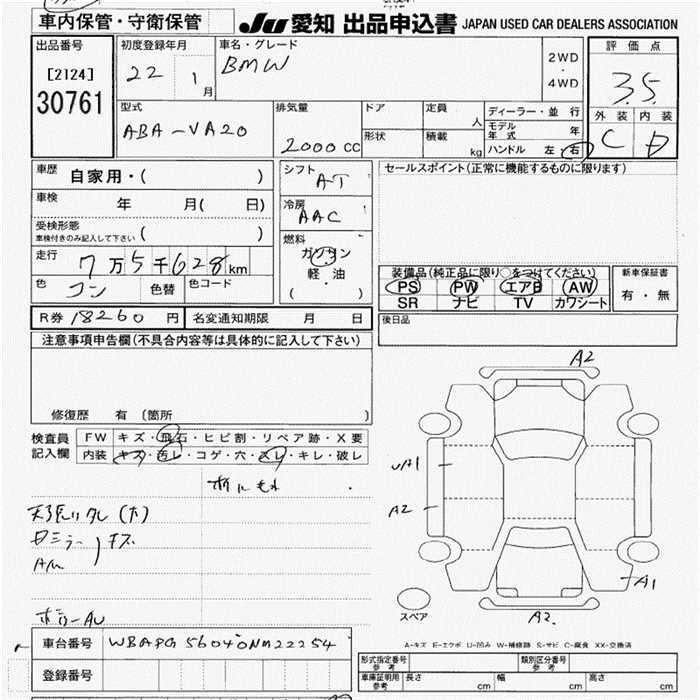 車内保管・守衛保管
JU 愛知 出品申込書 JAPAN USED CAR DEALERS ASSOCIATION
出品番号
[2124]
30761
初度登録年月
22 1月
車名・グレード
BMW
2WD
・
4WD
評価点
3.5
外装 内装
C D
型式
ABA-VA20
排気量
2000 CC
ドア
形状
定員 人
積載 kg
ディーラー・並行
モデル年式 年
ハンドル 左 右
車歴
自家用・( )
車検 年 月( 日)
受検形態
車検付きのみ記入して下さい ( )
走行 7万5千628km
色 コン 色替 色コード
シフト AT
冷房 AAC
燃料
ガソリン
軽・油
( ・ )
セールスポイント(正常に機能するものに限ります)
装備品(純正品に限り○をつけてください)
PS PW エアB AW
SR ナビ TV カワシート
新車保証書
有・無
R券 18260 円 名変通知期限 月 日
後日品
注意事項申告欄(不具合内容等は具体的に記入して下さい)
修復歴 有 (箇所 )
検査員記入欄
FW キズ・飛石・ヒビ割・リペア跡・X要
内装 キズ・汚レ・コゲ・穴・スレ・キレ・破レ
A2
UA1
A2
A1
A2
スペア
A-キズ E-エクボ U-凹み W-補修跡 S-サビ C-腐食 XX-交換済
車台番号 WBAPG56040NM22254
登録番号
形式指定番号 参考
類別区分番号 参考
車庫証明用 参考 長さ cm 幅 cm 高さ cm